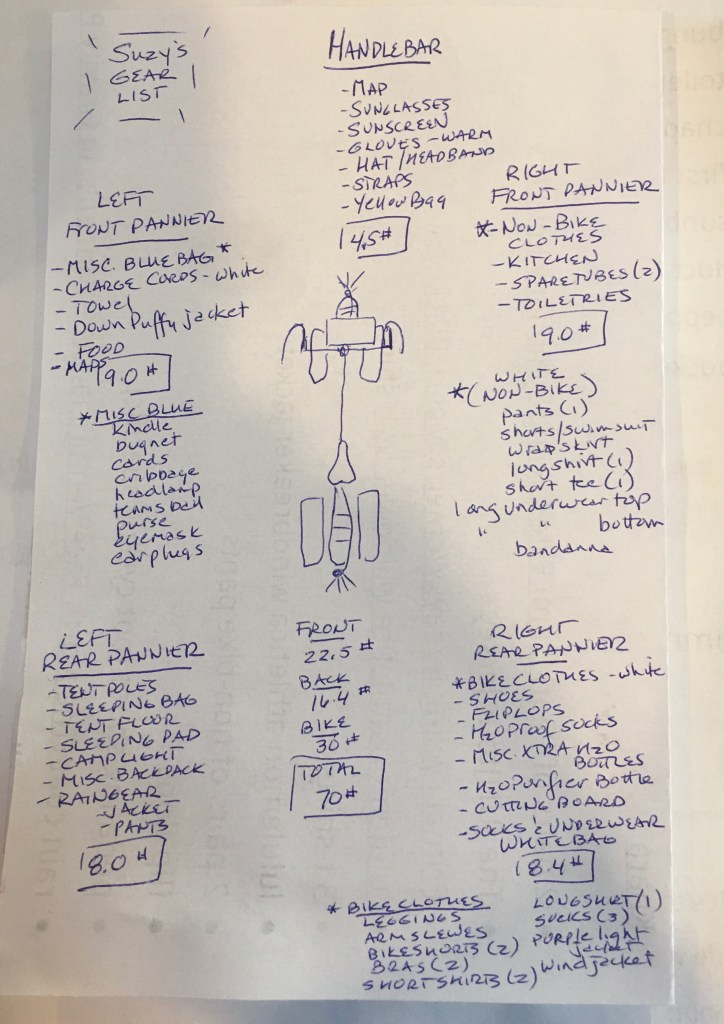 Suzy's
GEAR
LIST
HANDLEBAR
- MAP
- SUNGLASSES
- SUNSCREEN
- GLOVES - WARM
- HAT/HEADBAND
- STRAPS
- Yellow Bag
4.5#
LEFT
FRONT PANNIER
- MISC. BLUE BAG *
- CHARGE CORDS - white
- Towel
- Down Puffy jacket
- FOOD
- MAPS
9.0 #
* MISC BLUE
kindle
bugnet
cards
cribbage
headlamp
tennis ball
purse
eyemask
earplugs
RIGHT
FRONT PANNIER
* - NON-BIKE
CLOTHES
- KITCHEN
- SPARE TUBES (2)
- TOILETRIES
9.0 #
WHITE
* (NON-BIKE)
pants (1)
shorts/swimsuit
wrap skirt
long shirt (1)
short tee (1)
long underwear top
" " bottom
bandanna
LEFT
REAR PANNIER
- TENT POLES
- SLEEPING BAG
- TENT FLOOR
- SLEEPING PAD
- CAMP LIGHT
- MISC. BACKPACK
- RAINGEAR
- JACKET
- PANTS
8.0 #
FRONT
22.5 #
BACK
16.4 #
BIKE
30 #
TOTAL
70 #
RIGHT
REAR PANNIER
* BIKE CLOTHES - white
- SHOES
- FLIPLOPS
- H2O PROOF SOCKS
- MISC. XTRA H2O
BOTTLES
- H2O Purifier Bottle
- CUTTING BOARD
- SOCKS & UNDERWEAR
WHITE BAG
8.4 #
* BIKE CLOTHES
LEGGINGS
ARM SLEWES
BIKE SHORTS (2)
BRAS (2)
SHORT SHIRTS (2)
LONG SHIRT (1)
SOCKS (3)
purple light
jacket
wind jacket